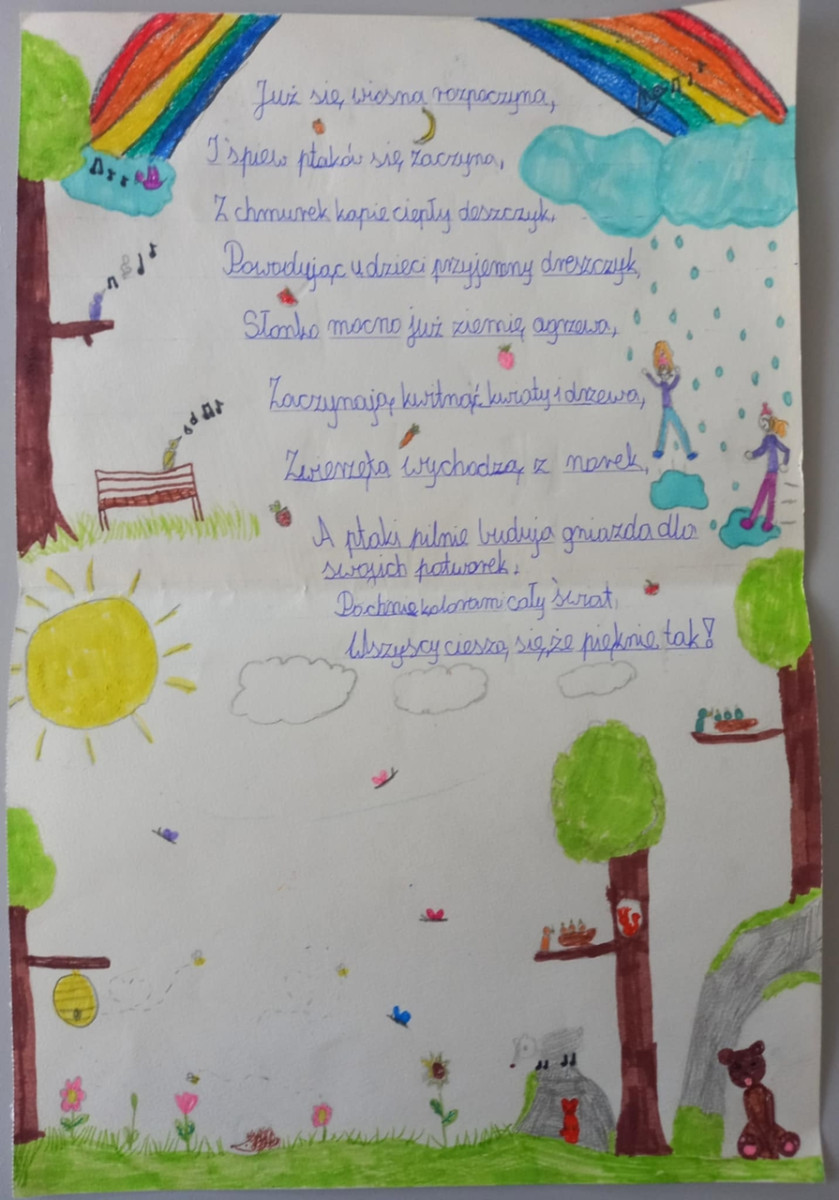 Już się wiosna rozpoczyna,
I śpiew ptaków się zaczyna,
Z chmurek kapie ciepły deszczyk,
Powodując u dzieci przyjemny dreszczyk,
Słonko mocno już ziemię ogrzewa,
Zaczynają kwitnąć kwiaty i drzewa,
Zwierzęta wychodzą z norek,
A ptaki pilnie budują gniazda dla
swoich potworek.
Pachnie kolorami cały świat,
Wszyscy cieszą się, że pięknie tak!